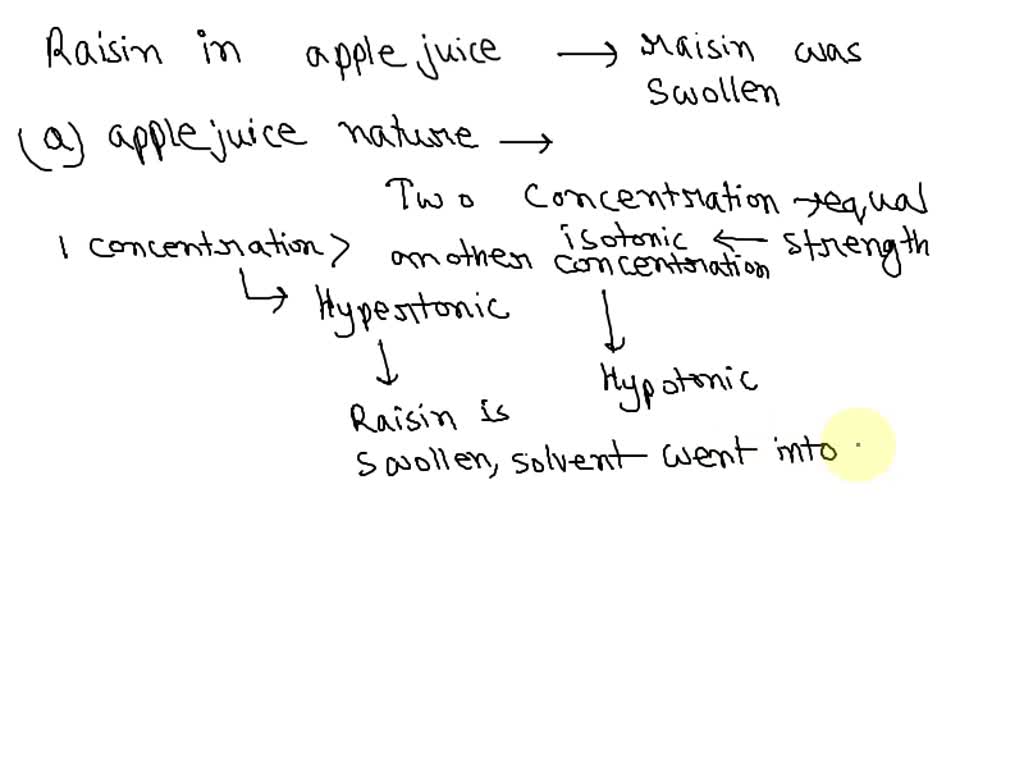 Raisin in apple juice → raisin was
swollen
(a) apple juice nature →
Two concentration → equal
1 concentration > another concentration isotonic ← strength
Hypertonic
Hypotonic
Raisin is
swollen, solvent went into